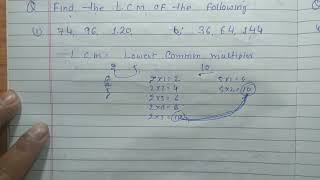 Q Find the L.C.M of the following
(i) 74, 96, 120, b, 36, 64, 144
L.C.M = Lowest Common multiples
2 5 10
2×1=2 5×1=5
2×2=4 5×2=10
2×3=6
2×4=8
2×5=10